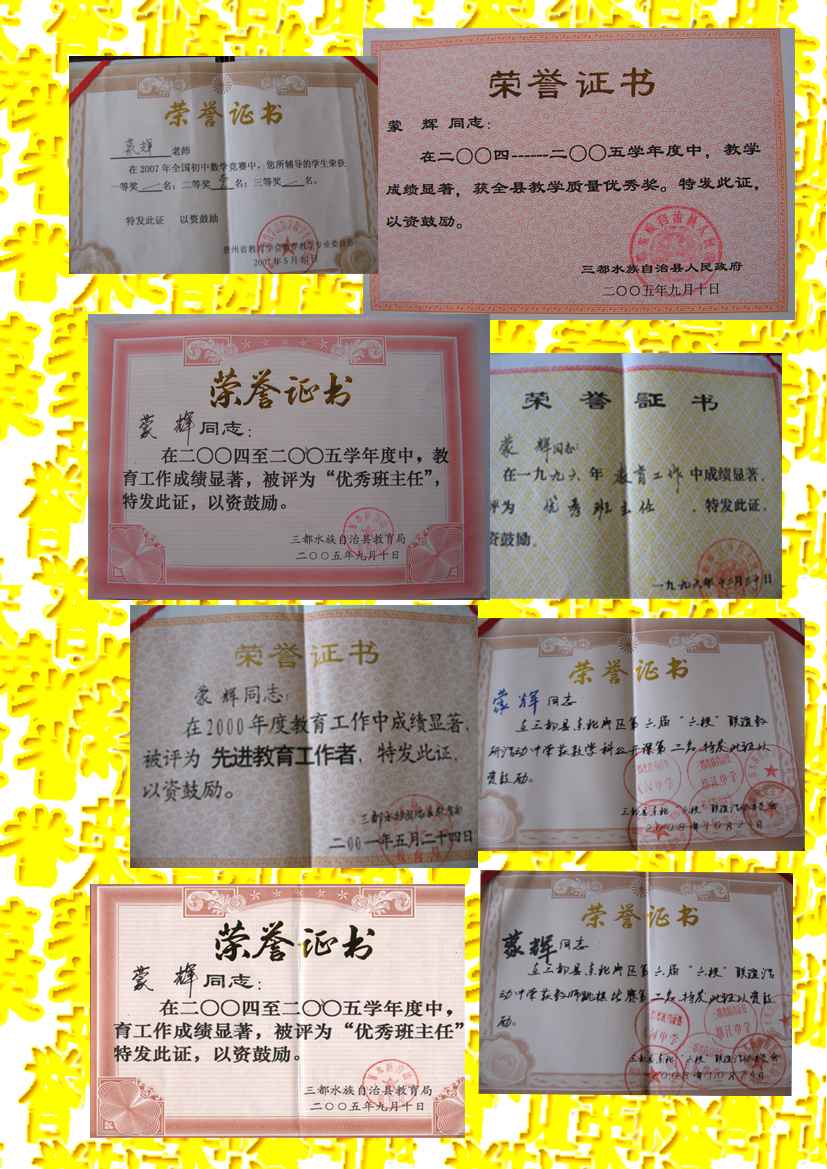 荣誉证书
蒙辉 老师
在2007年全国初中数学竞赛中，您所辅导的学生荣获
一等奖 名；二等奖 名；三等奖 名。
特发此证 以资鼓励
2007年5月
荣誉证书
蒙 辉 同志：
在二〇〇四------二〇〇五学年度中，教学
成绩显著，获全县教学质量优秀奖。特发此证，
以资鼓励。
三都水族自治县人民政府
二〇〇五年九月十日
荣誉证书
蒙 辉 同志：
在二〇〇四至二〇〇五学年度中，教
育工作成绩显著，被评为“优秀班主任”，
特发此证，以资鼓励。
三都水族自治县教育局
二〇〇五年九月十日
荣誉証书
蒙 辉 同志：
在一九九六年 教育工作 中成绩显著，
评为 优秀班主任 ，特发此证，
资鼓励。
一九九六年十二月二十日
荣誉证书
蒙 辉 同志：
在2000年度教育工作中成绩显著，
被评为 先进教育工作者，特发此证，
以资鼓励。
二00一年五月二十四日
荣誉证书
蒙辉 同志
在三都县东北片区第六届“六校”联谊教
研活动中荣获数学科公开课第二名 特发此证以
资鼓励。
荣誉证书
蒙 辉 同志：
在二〇〇四至二〇〇五学年度中，
育工作成绩显著，被评为“优秀班主任”
特发此证，以资鼓励。
三都水族自治县教育局
二〇〇五年九月十日
荣誉证书
蒙辉 同志
在三都县东北片区第六届“六校”联谊活
动中荣获教师 比赛第二名 特发此证以资鼓
励。